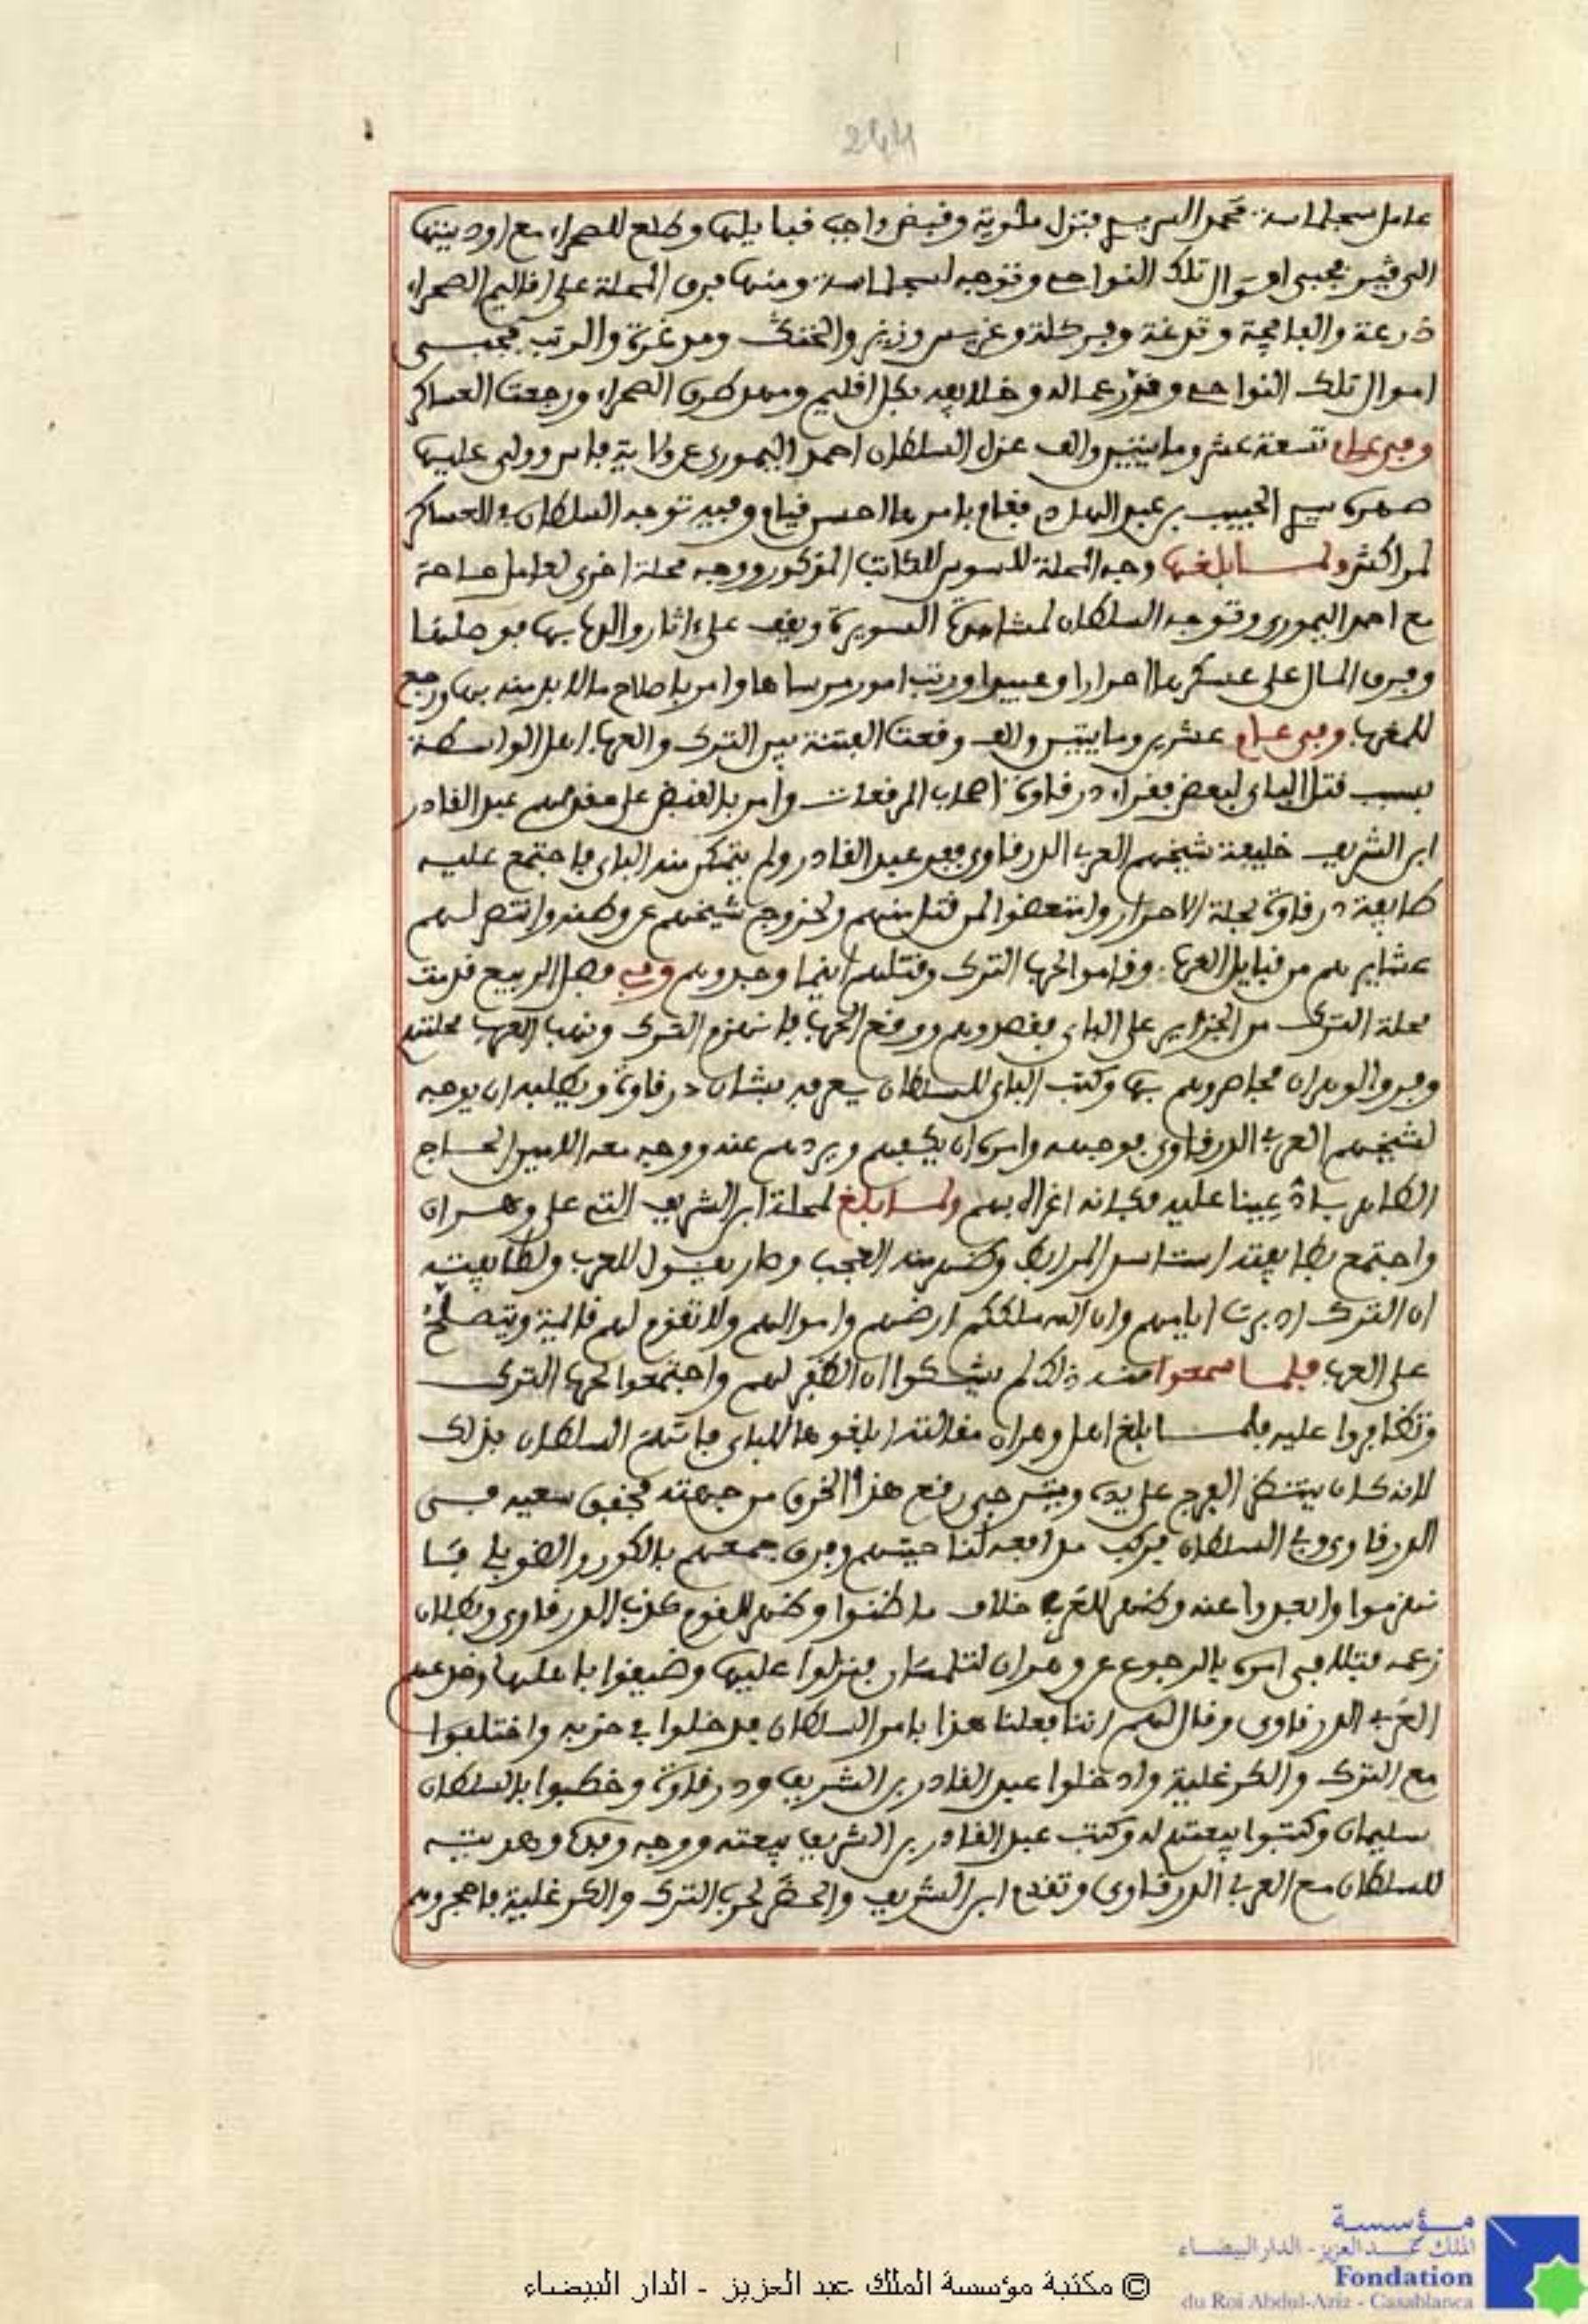 244
عامل سجلماسة محمد الصريدي فنزل ملوية وقبض واجب قبايلها وطلع للصحراء مع اوديتها
الى فجيج فجبى اموال تلك النواحي وتوجه لسجلماسة ومنها فرق المحلة على اقاليم الصحراء
ذرعة والفايجة وتدغة وفركلة وغريس وزيز والخنك ومدغرة والرتب فجبى
اموال تلك النواحي وقرر عماله وخلايفه بكل اقليم ومهد طرق الصحراء ورجعت العساكر
وفي عام تسعة عشر وماينتين والف عزل السلطان احمد اليموري عن ولاية فاس وولى عليها
صهره سيدي الحبيب بن عبد الهادي فقام بامرها احسن قيام وفيه توجه السلطان في العساكر
لمراكش ولما بلغها وجه المحلة للسوس للكاتب المذكور ووجه محلة اخرى لعامل حاحة
مع احمد اليموري وتوجه السلطان لمشاهدة السويرة ويقف على اثار والده بها فوصلها
وفرق المال على عسكرها احرارا وعبيدا ورتب امور مرساها وامر باصلاح ما لا بد منه بها ورجع
للمغرب وفي عام عشرين ومايتين والف وقعت الفتنة بين الترك والعرب اهل الواسطة
بسبب قتل الباي لبعض فقراء درقاوة اصحاب المرقعات وامر بالقبض على مقدمهم عبد القادر
ابن الشريف خليفة شيخهم العربي الدرقاوي ففر عبد القادر ولم يتمكن منه الباي فاجتمع عليه
طايفة درقاوة لحلة الاحرار وامتعضوا لمن قتل منهم ولخروج شيخهم عن وطنه وانتصر لهم
عشايرهم من قبايل العرب وقاموا لحرب الترك وقتلهم اينما وجدوهم وفي فصل الربيع قدمت
محلة الترك من الجزاير على الباي فقصدوهم ووقع الحرب فانهزم الترك ونهب العرب محلتهم
وفروا لوهران فحاصروهم بها وكتب الباي للسلطان يعرفه بشان درقاوة ويطلبه ان يوجه
لشيخهم العربي الدرقاوي فوجهه وامره ان يكفهم ويردهم عنه ووجه معه الامين الحاج
الطاهر بادة عينا عليه فكانه اغراه بهم ولما بلغ لمحلة ابن الشريف التي على وهران
واجتمع بطايفته استاسد المرابط وظهر منه العجب وصار يقول للعرب ولطايفته
ان الترك ادبرت ايامهم وان الله ملككم ارضهم واموالهم ولا تقوم لهم قايمة ويتصلح
على العرب فلما سمعوا منه ذلك لم يشكوا ان الظفر لهم واجتمعوا لحرب الترك
وتظافروا عليه فلما بلغ اهل وهران مقالته ابلغوها للباي فاتهم السلطان بذلك
لانه كان ينتظر الفرج على يده ويترجى رفع هذا الخرق من جهته فخفق سعيه في
الدرقاوي وفي السلطان فركب مدافعه لناحيتهم وفرق جمعهم بالكور والضوبلي فتا
نهزموا وابعدوا عنه وظهر للعرب خلاف ما ظنوا وظهر للقوم كذب الدرقاوي وبطلان
زعمه فتلافى امره بالرجوع عن وهران لتلمسان فنزلوا عليها وضيقوا باهلها وخدعهم
العربي الدرقاوي وقال لهم اننا فعلنا هذا بامر السلطان فدخلوا في حزبه واختلفوا
مع الترك والكرغلية وادخلوا عبد القادر بن الشريف ودرقاوة وخطبوا بالسلطان
سليمان وكتبوا بيعتهم له وكتب عبد القادر بن الشريف بيعته ووجه وفده وهديته
للسلطان مع العربي الدرقاوي وتقدم ابن الشريف والحضر لحرب الترك والكرغلية فاحجروهم
مؤسسة
الملك عبد العزيز - الدار البيضاء
Fondation
du Roi Abdul-Aziz - Casablanca
© مكتبة مؤسسة الملك عبد العزيز - الدار البيضاء